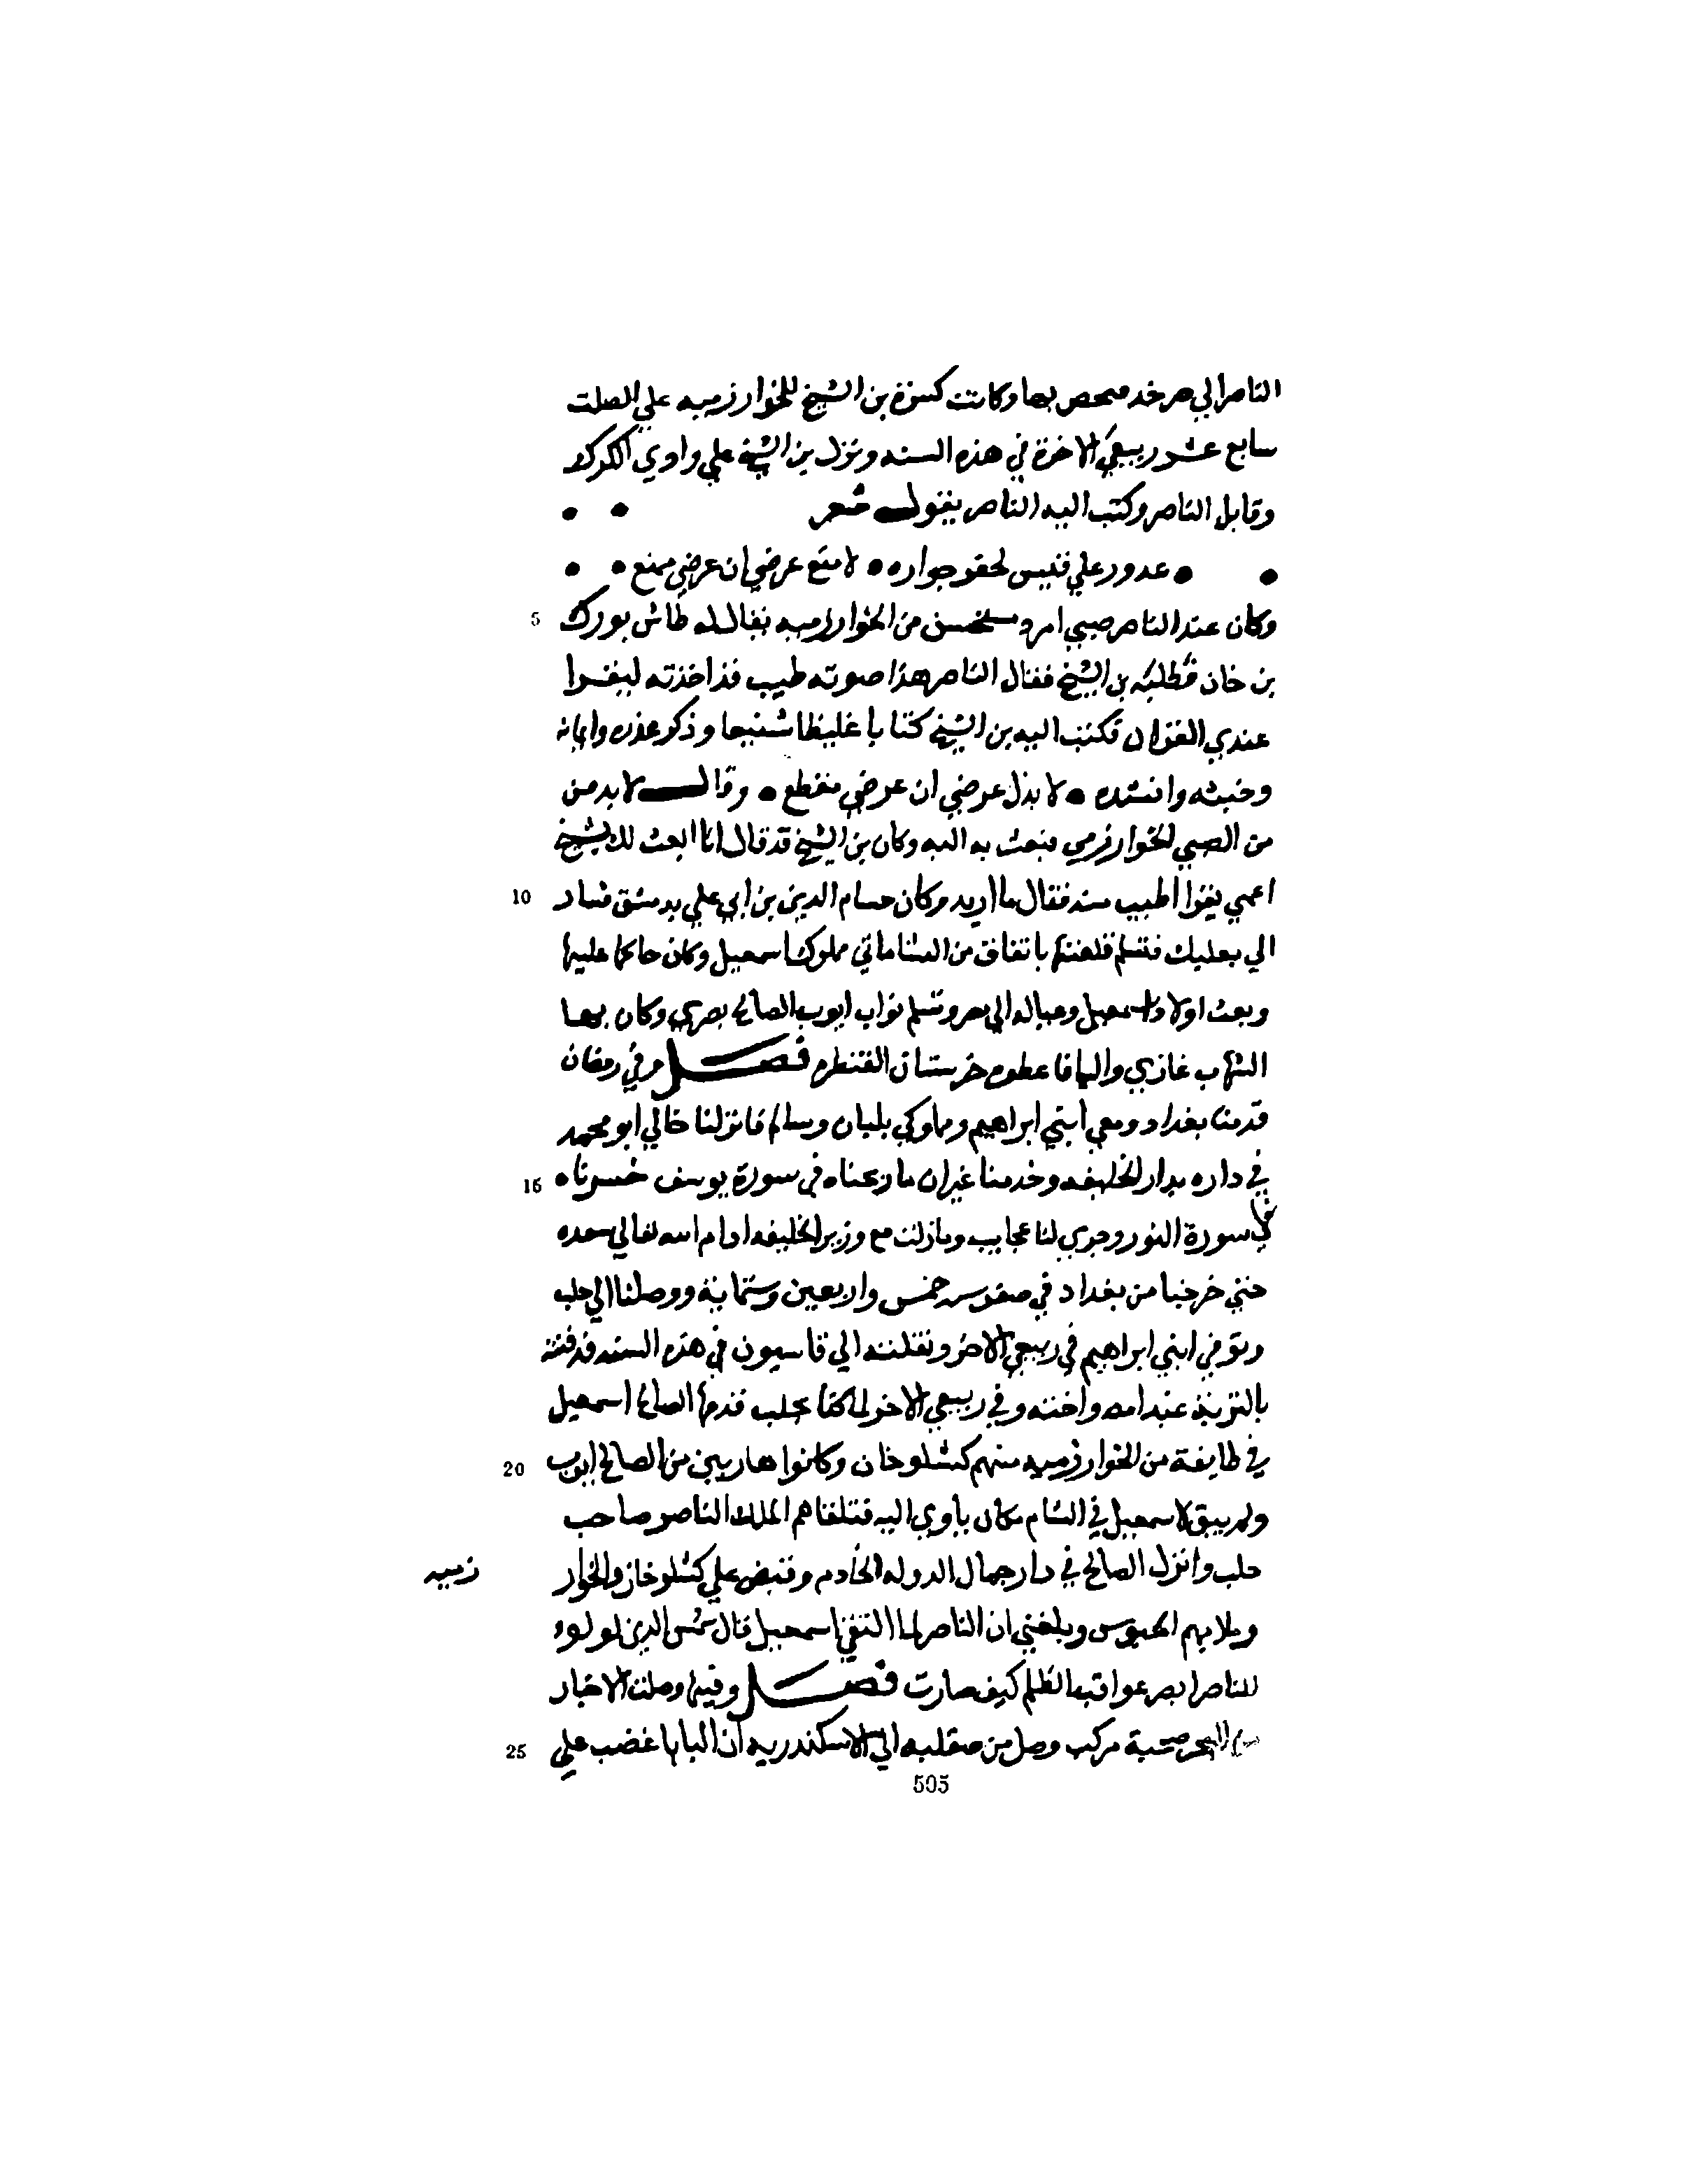 الناصر الي صرخد فتحصن بها وكانت كسرة بن الشيخ للخوارزميه علي الصلت
سابع عشر ربيع الاخرة في هذه السنه ونزل بن الشيخ علي وادي الكرك
وقابل الناصر وكتب اليه الناصر يقول شعر
عدور علي قيس لحقو جواره • لامنع عرضي ان عرضي ممنع •
وكان عند الناصر صبي امرد مستحسن من الخوارزميه يقال له طاش بورك 5
بن خان فطلبه بن الشيخ فقال الناصر هذا صوته طيب قد اخذته ليقرا
عندي القران فكتب اليه بن الشيخ كتابا غليظا شنيعا وذكر غدره وايمانه
وخبثه وانشده • لابذل عرضي ان عرضي منقطع • وقال لا بد من
من الصبي الخوارزمي فبعث به اليه وكان بن الشيخ قد قال انا ابعث لك بشيخ
اعمي يقرا اطيب منه فقال ما اريد وكان حسام الدين بن ابي علي بدمشق فسار 10
الي بعلبك فتسلم قلعتها باتفاق من الساماني مملوك اسمعيل وكان حاكما عليها
وبعث اولاد اسمعيل وعياله الي مصر وتسلم نواب ايوب الصالح بصري وكان بها
الشهاب غازي والبها فاعطوه حرستان القنطره فصل وفي رمضان
قدمنا بغداد ومعي ابني ابراهيم ومملوكي بلبان وسالم فانزلنا خالي ابو محمد
في داره بدار الخليفه وخدمنا غير ان ما ربحناه في سورة يوسف خسرناه 15
في سورة النور وجري لنا عجايب ومازلت مع وزير الخليفه ادام الله تعالي سعده
حتي خرجنا من بغداد في صفر سنه خمس واربعين وستماية ووصلنا الي حلب
وتوفي ابني ابراهيم في ربيع الاخر ونقلته الي قاسيون في هذه السنه فدفنته
بالتربة عند امه واخته وفي ربيع الاخر لما كنا بحلب قدمها الصالح اسمعيل
في طايفة من الخوارزميه منهم كشلوخان وكانوا هاربين من الصالح ايوب 20
ولم يبق لاسمعيل في الشام مكان ياوي اليه فتلقاهم الملك الناصر صاحب
حلب وانزل الصالح في دار جمال الدوله الخادم وقبض علي كشلوخان والخوار زميه
وملا بهم الحبوس وبلغني ان الناصر لما التقي اسمعيل قال شمس الدين لولوه
للناصر ابصر عواقب الظلم كيف صارت فصل وفيها وصلت الاخبار
البحر صحبة مركب وصل من صقليه الي الاسكندريه ان البابا غضب علي 25
505